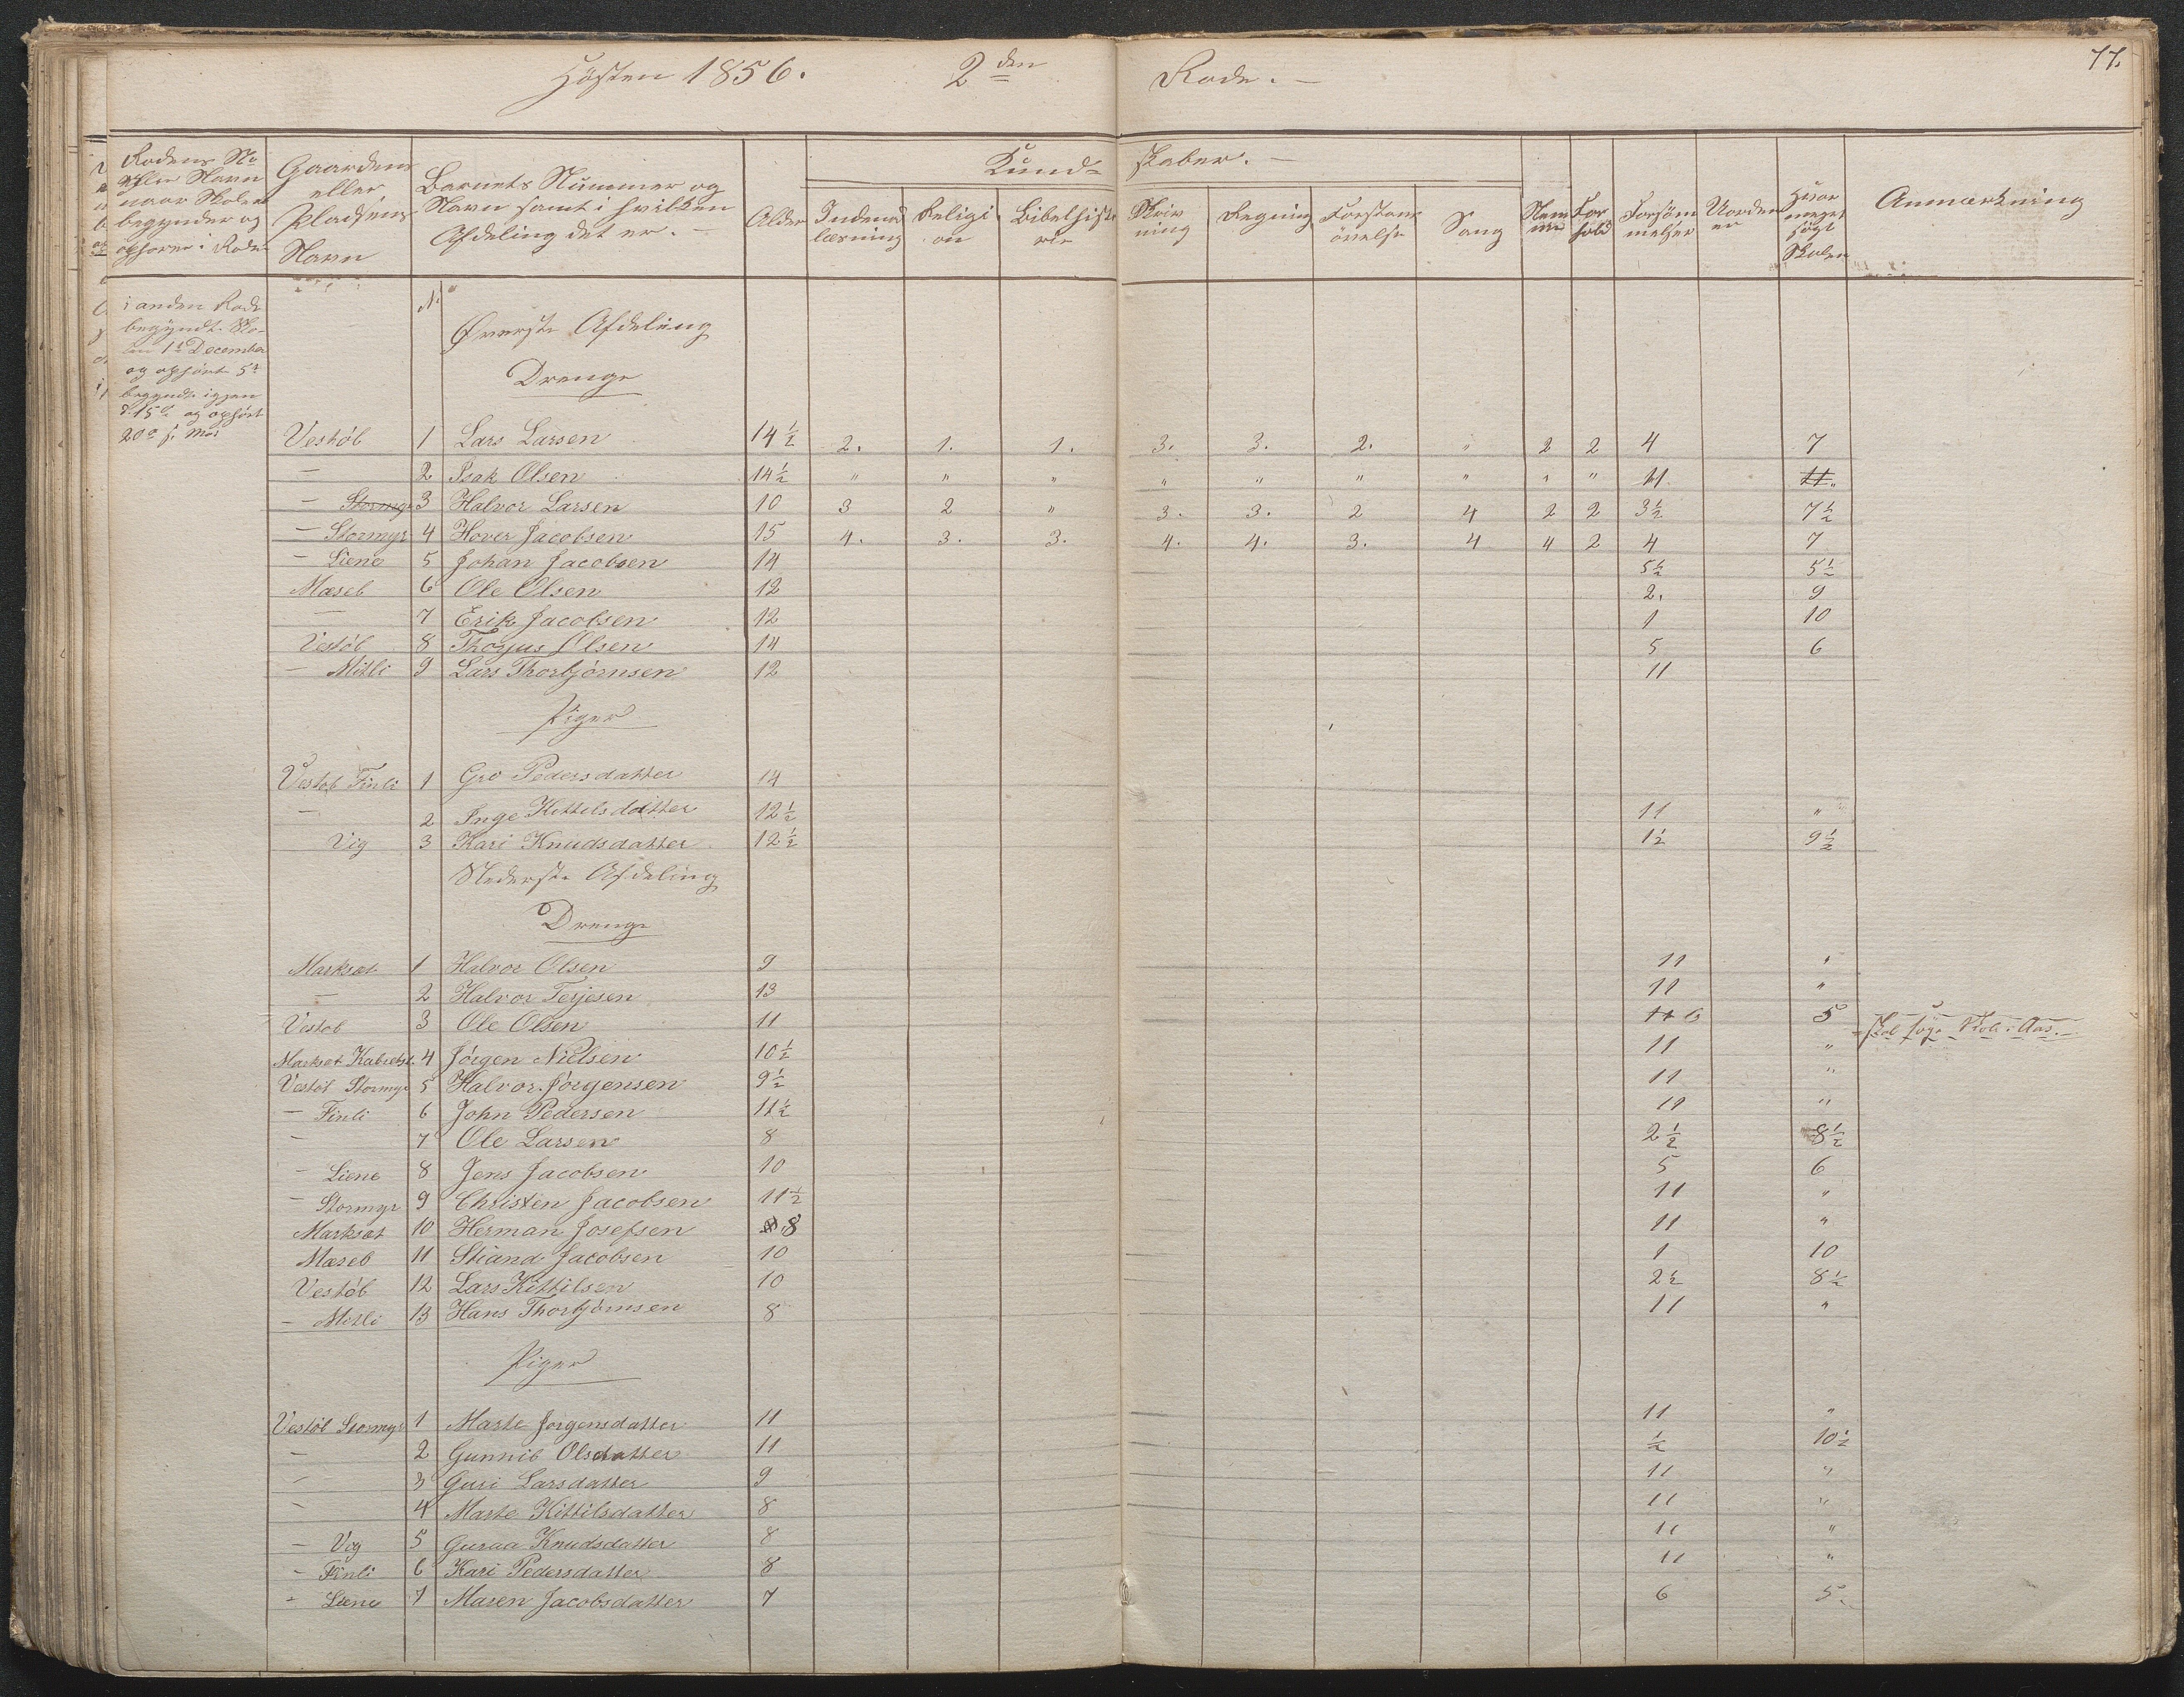 Høsten 1856. 2den Rode. —
77.
Rodens No eller Navn naar Skolen begynder og ophører i Roden
Gaardens eller Pladsens Navn
Barnets Nummer og Navn samt i hvilken Afdeling det er. —
Alder
Kundskaber. —
Indenadlæsning
Religion
Bibelhistorie
Skrivning
Regning
Forstandsøvelse
Sang
Nemme
Forhold
Forsømmelser
Uordener
Hvormeget søgt Skolen
Anmærkning
i anden Rode
begyndte Sko-
len 1ste December
og ophørte 5te
begyndte igjen
d. 15de og ophørt
20de s. M.
No
Øverste Afdeling
Drenge
Vestøl 1 Lars Larsen 14½ 2. 1. 1. 3. 3. 2. " 2 2 4 7
— 2 Isak Olsen 14½ " " " " " " " " " 11. 11 "
— Stormyr 3 Halvor Larsen 10 3 2 " 3. 3. 2 4 2 2 3½ 7½
— Stormyr 4 Hover Jacobsen 15 4. 3. 3. 4. 4. 3. 4 4 2 4 7
— Liene 5 Johan Jacobsen 14 5½ 5½
Mæsel 6 Ole Olsen 12 2. 9
— 7 Erik Jacobsen 12 1 10
Vestøl 8 Thorjus Olsen 14 5 6
— Mitli 9 Lars Thorbjørnsen 12 11
Piger
Vestøl Finli 1 Gro Pedersdatter 14
— 2 Inge Kittelsdatter 12½ 11 "
Vig 3 Kari Knudsdatter 12½ 1½ 9½
Nederste Afdeling
Drenge
Marksæt 1 Halvor Olsen 9 11 "
— 2 Halvor Terjesen 13 11 "
Vestøl 3 Ole Olsen 11 11 6 5 Skal søge Skole i Aas.
Marksæt 4 Jørgen Nielsen 10½ 11 "
Vestøl Stormyr 5 Halvor Jørgensen 9½ 11 "
— Finli 6 John Pedersen 11½ 11 "
— 7 Ole Larsen 8 2½ 8½
— Liene 8 Jens Jacobsen 10 5 6
— Stormyr 9 Christen Jacobsen 11½ 11 "
Marksæt 10 Herman Josefsen 8 11 "
Mæsel 11 Stiand Jacobsen 10 1 10
Vestøl 12 Lars Kittilsen 10 2½ 8½
— Mitli 13 Hans Thorbjørnsen 8 11 "
Piger
Vestøl Stormyr 1 Marte Jørgensdatter 11 11 "
— 2 Gunnil Olsdatter 11 ½ 10½
— 3 Guri Larsdatter 9 11 "
— 4 Marte Kittilsdatter 8 11 "
— Vig 5 Guraa Knudsdatter 8 11 "
— Finli 6 Kari Pedersdatter 8 11 "
— Liene 7 Maren Jacobsdatter 7 6 5.